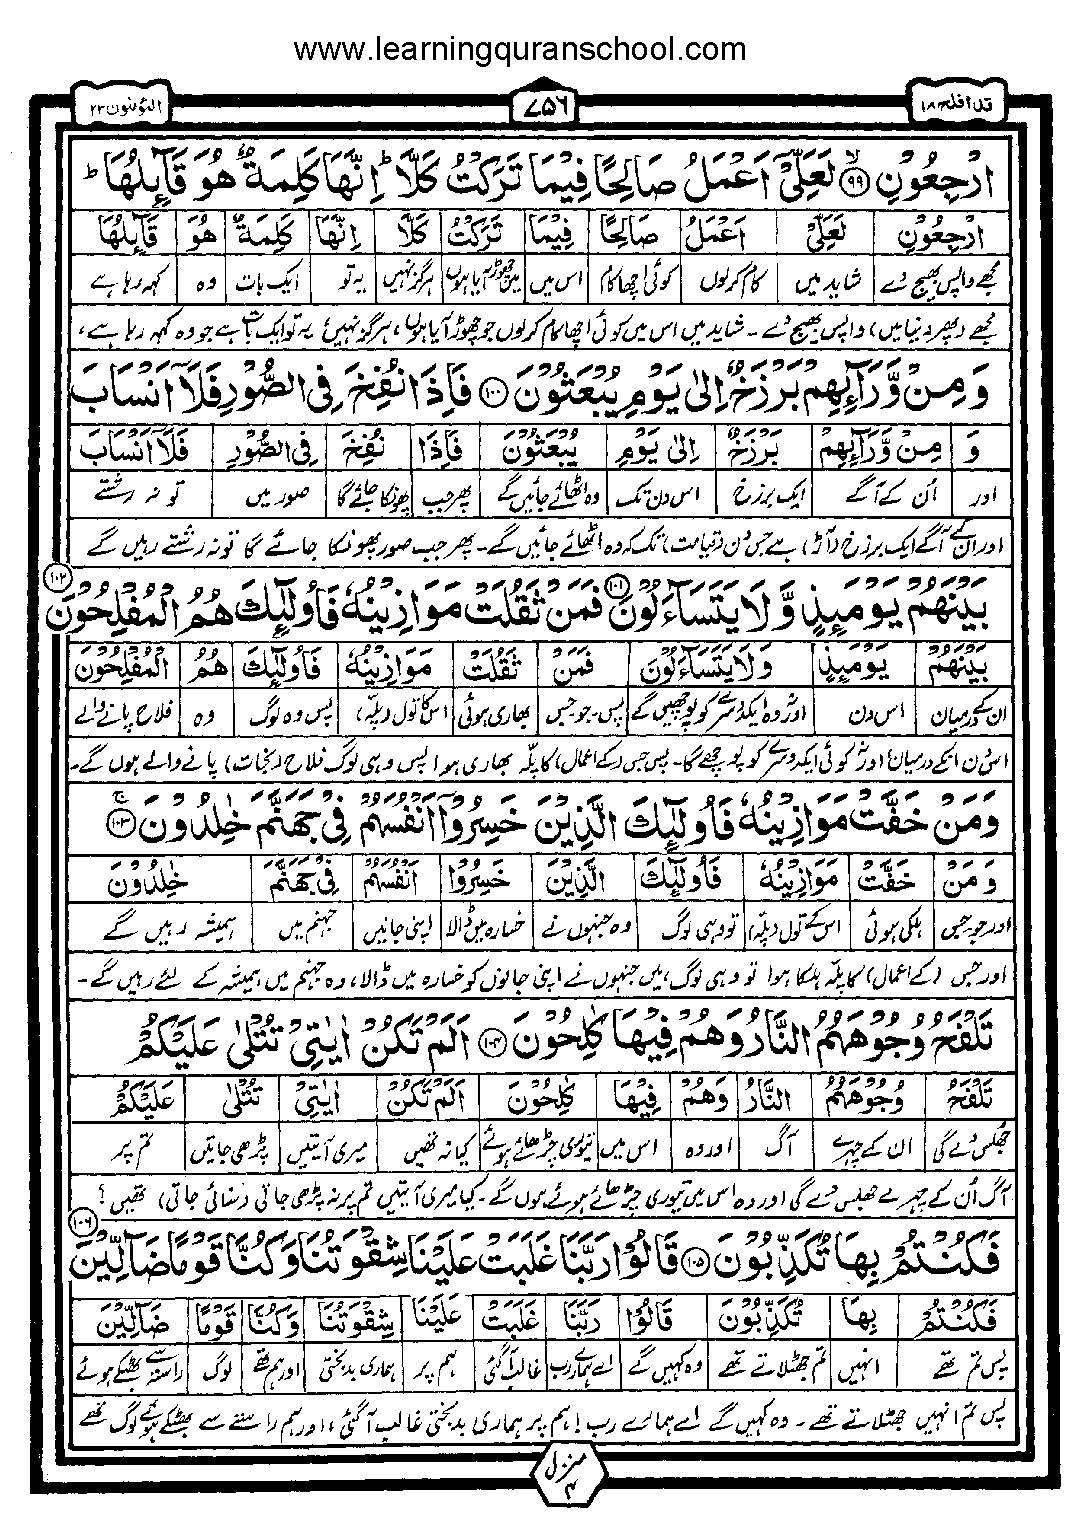 www.learningquranschool.com
قد افلح ۱۸
۷۵۶
المؤمنون ۲۳
ارْجِعُوْنِ ۙ﴿۹۹﴾ لَعَلِّیْۤ اَعْمَلُ صَالِحًا فِیْمَا تَرَكْتُ كَلَّا ؕ اِنَّهَا كَلِمَةٌ هُوَ قَآىِٕلُهَا ؕ
ارْجِعُوْنِ لَعَلِّیْۤ اَعْمَلُ صَالِحًا فِیْمَا تَرَكْتُ كَلَّا اِنَّهَا كَلِمَةٌ هُوَ قَآىِٕلُهَا
مجھے واپس بھیج دے شاید میں کام کرلوں کوئی اچھا کام اس میں میں چھوڑ آیا ہوں ہرگز نہیں یہ تو ایک بات وہ کہہ رہا ہے
مجھے (پھر دنیا میں) واپس بھیج دے۔ شاید میں اس میں کوئی اچھا کام کرلوں جو چھوڑ آیا ہوں، ہرگز نہیں! یہ تو ایک بات ہے جو وہ کہہ رہا ہے،
وَ مِنْ وَّرَآىِٕهِمْ بَرْزَخٌ اِلٰی یَوْمِ یُبْعَثُوْنَ ﴿۱۰۰﴾ فَاِذَا نُفِخَ فِی الصُّوْرِ فَلَاۤ اَنْسَابَ
وَ مِنْ وَّرَآىِٕهِمْ بَرْزَخٌ اِلٰی یَوْمِ یُبْعَثُوْنَ فَاِذَا نُفِخَ فِی الصُّوْرِ فَلَاۤ اَنْسَابَ
اور اُن کے آگے ایک برزخ اس دن تک وہ اٹھائے جائیں گے پھر جب پھونکا جائے گا صور میں تو نہ رشتے
اور ان کے آگے ایک برزخ (آڑ) ہے جس دن (قیامت) تک کہ وہ اٹھائے جائیں گے۔ پھر جب صور پھونکا جائے گا تو نہ رشتے رہیں گے
بَیْنَهُمْ یَوْمَىِٕذٍ وَّ لَا یَتَسَآءَلُوْنَ ﴿۱۰۱﴾ فَمَنْ ثَقُلَتْ مَوَازِیْنُهٗ فَاُولٰٓىِٕكَ هُمُ الْمُفْلِحُوْنَ ﴿۱۰۲﴾
بَیْنَهُمْ یَوْمَىِٕذٍ وَّلَا یَتَسَآءَلُوْنَ فَمَنْ ثَقُلَتْ مَوَازِیْنُهٗ فَاُولٰٓىِٕكَ هُمُ الْمُفْلِحُوْنَ
ان کے درمیان اس دن اور نہ وہ ایک دوسرے کو پوچھیں گے پس۔ جو جس بھاری ہوئی اس کا تول (پلہ) پس وہ لوگ وہ فلاح پانے والے
اس دن انکے درمیان اور نہ کوئی ایک دوسرے کو پوچھے گا۔ پس جس (کے اعمال) کا پلّہ بھاری ہوا پس وہی لوگ فلاح (نجات) پانے والے ہوں گے۔
وَ مَنْ خَفَّتْ مَوَازِیْنُهٗ فَاُولٰٓىِٕكَ الَّذِیْنَ خَسِرُوْۤا اَنْفُسَهُمْ فِیْ جَهَنَّمَ خٰلِدُوْنَ ۚ﴿۱۰۳﴾
وَ مَنْ خَفَّتْ مَوَازِیْنُهٗ فَاُولٰٓىِٕكَ الَّذِیْنَ خَسِرُوْۤا اَنْفُسَهُمْ فِیْ جَهَنَّمَ خٰلِدُوْنَ
اور جو جس ہلکی ہوئی اس کے تول (پلہ) تو وہی لوگ وہ جنہوں نے خسارہ میں ڈالا اپنی جانیں جہنم میں ہمیشہ رہیں گے
اور جس (کے اعمال) کا پلّہ ہلکا ہوا تو وہی لوگ ہیں جنہوں نے اپنی جانوں کو خسارہ میں ڈالا، وہ جہنم میں ہمیشہ کے لئے رہیں گے۔
تَلْفَحُ وُجُوْهَهُمُ النَّارُ وَ هُمْ فِیْهَا كٰلِحُوْنَ ﴿۱۰۴﴾ اَلَمْ تَكُنْ اٰیٰتِیْ تُتْلٰی عَلَیْكُمْ
تَلْفَحُ وُجُوْهَهُمُ النَّارُ وَهُمْ فِیْهَا كٰلِحُوْنَ اَلَمْ تَكُنْ اٰیٰتِیْ تُتْلٰی عَلَیْكُمْ
جھلس دے گی ان کے چہرے آگ اور وہ اس میں تیوری چڑھائے ہوئے کیا نہ تھیں میری آیتیں پڑھی جاتیں تم پر
آگ اُن کے چہرے جھلس دے گی اور وہ اس میں تیوری چڑھائے ہوئے ہوں گے۔ کیا میری آیتیں تم پر نہ پڑھی جاتی (سنائی جاتی) تھیں؟
فَكُنْتُمْ بِهَا تُكَذِّبُوْنَ ﴿۱۰۵﴾ قَالُوْا رَبَّنَا غَلَبَتْ عَلَیْنَا شِقْوَتُنَا وَ كُنَّا قَوْمًا ضَآلِّیْنَ ﴿۱۰۶﴾
فَكُنْتُمْ بِهَا تُكَذِّبُوْنَ قَالُوْا رَبَّنَا غَلَبَتْ عَلَیْنَا شِقْوَتُنَا وَكُنَّا قَوْمًا ضَآلِّیْنَ
پس تم تھے انہیں تم جھٹلاتے تھے وہ کہیں گے اے ہمارے رب غالب آگئی ہم پر ہماری بدبختی اور ہم تھے لوگ راستہ سے بھٹکے ہوئے
پس تم انہیں جھٹلاتے تھے۔ وہ کہیں گے اے ہمارے رب! ہم پر ہماری بدبختی غالب آگئی، اور ہم راستے سے بھٹکے ہوئے لوگ تھے
منزل ۴